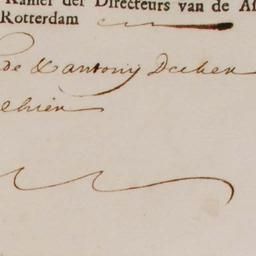 Kamer der Directeurs van de As
Rotterdam
de & antony Decker
alhier